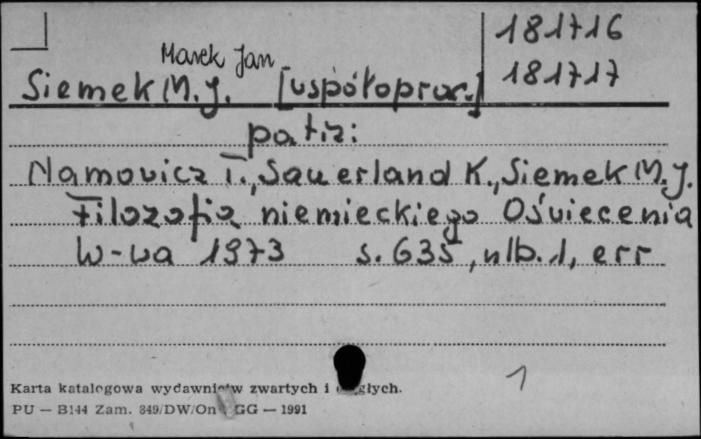 181716
Marek Jan
Siemek M. J. [współoprac.] 181717
patrz:
Namowicz T., Sauerland K., Siemek M. J.
Filozofia niemieckiego Oświecenia
W-wa 1973 s. 635, nlb. 1, err
1
Karta katalogowa wydawnictw zwartych i ciągłych.
PU — B144 Zam. 849/DW/On GG — 1991